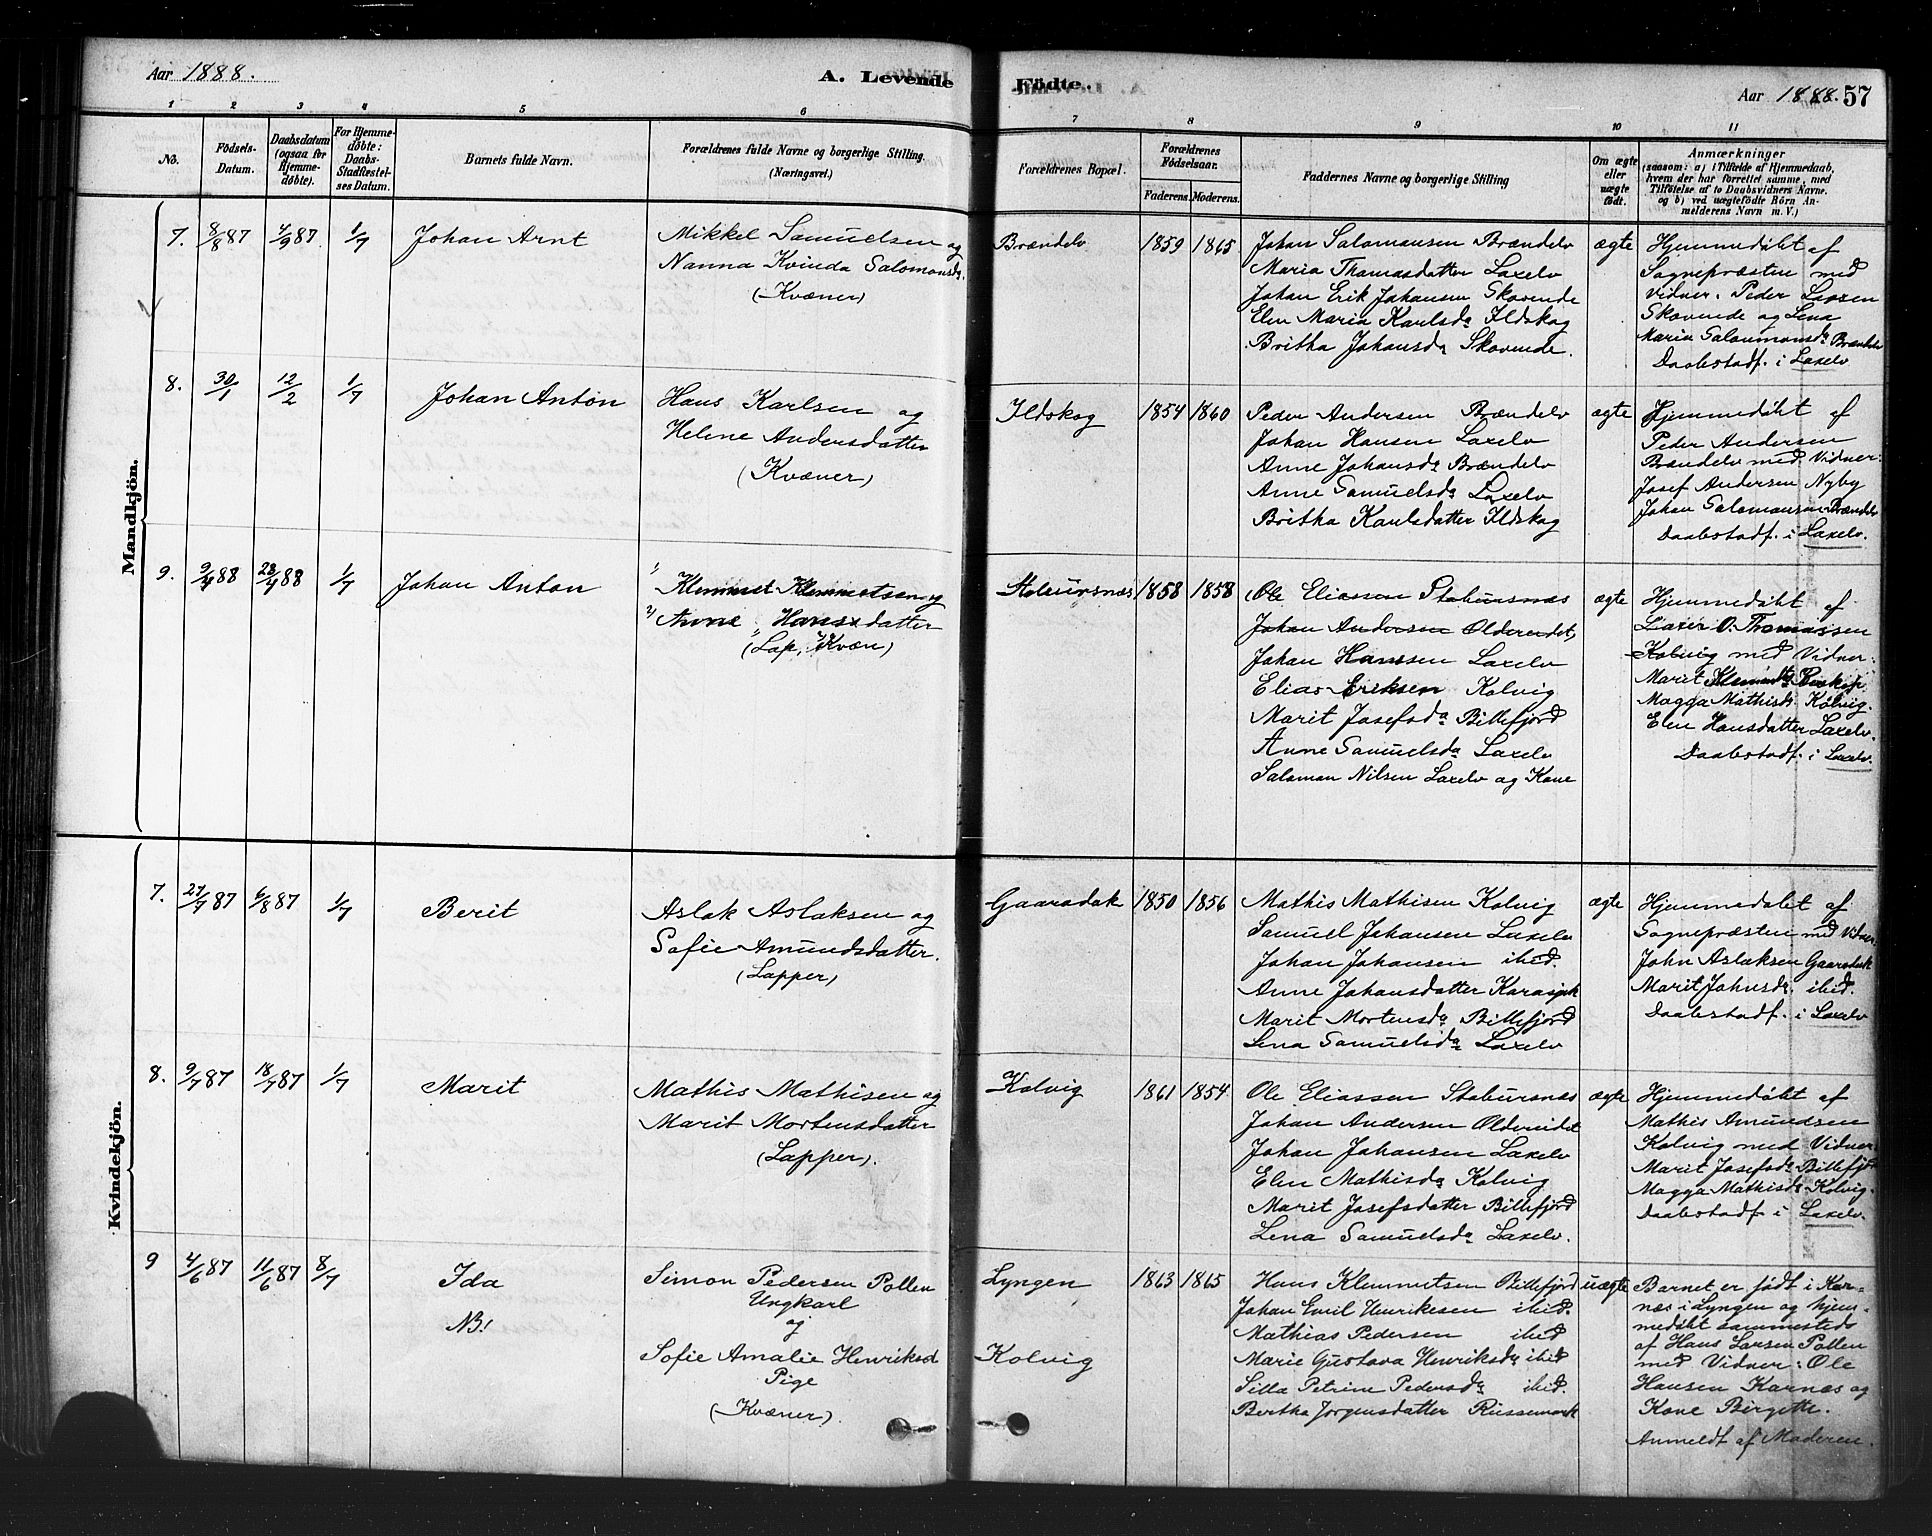 Aar 1888.
A. Levende
Fødte.
Aar 1888. 57
1 2 3 4 5 6 7 8 9 10 11
No.
Fødsels-
Datum.
Daabsdatum
(ogsaa for
Hjemme-
døbte).
For Hjemme-
døbte:
Daabs-
Stadfæstel-
ses Datum.
Barnets fulde Navn.
Forældrenes fulde Navne og borgerlige Stilling
(Næringsvei.)
Forældrenes Bopæl.
Forældrenes
Fødselsaar.
Faderens. Moderens.
Faddernes Navne og borgerlige Stilling
Om ægte
eller
uægte
født.
Anmærkninger
(saasom: a) i Tilfælde af Hjemmedaab,
hvem der har forrettet samme, med
Tilføielse af to Daabsvidners Navne.
og b) ved uægtefødte Børn An-
melderens Navn m. V.)
Mandkjön.
7. 8/8 87 4/9 87 1/7 Johan Arnt
Mikkel Samuelsen og
Nanna Kvinda Salomonsdr
(Kvæner)
Brændelv 1859 1865
Johan Salomonsen Brændelv
Maria Thomasdatter Laxelv
Johan Erik Johansen Skovende
Elen Maria Karlsda Ildskog
Britha Johansda Skovende.
ægte
Hjemmedøbt af
Sognepræsten med
Vidner. Peder Larsen
Skovende og Lena
Maria Salomonsda Brændelv
Daabstadf. i Laxelv
8. 30/1 12/2 1/7 Johan Anton
Hans Karlsen og
Helene Andersdatter
(Kvæner)
Ildskog 1854 1860
Peder Andersen Brændelv
Johan Hansen Laxelv
Anne Johansda Brændelv
Anne Samuelsda Laxelv
Britha Karlsdatter Ildskog
ægte
Hjemmedøbt af
Peder Andersen
Brændelv med Vidner:
Josef Andersen Nyby
Johan Salomonsen Brændelv
Daabstadf. i Laxelv.
9. 9/4 88 23/4 88 1/7 Johan Anton
1) Klemmet Klemmetsen og
2) Anne Hansdatter
(1) Lap, 2) Kvæn)
Stabursnæs 1858 1858
Ole Eliassen Stabursnæs
Johan Andersen Olderendet,
Johan Hanssen Laxelv
Elias Eriksen Kolvig
Marit Josefsda Billefjord
Anne Samuelsda Laxelv
Salomon Nilsen Laxelv og Kone
ægte
Hjemmedøbt af
O. Thomassen
Kolvig med Vidner:
Marit
Magga Mathisd. Kolvig.
Elen Hansdatter Laxelv.
Daabstadf. i Laxelv.
Kvindekjön.
7. 27/7 87 6/8 87 1/7 Berit
Aslak Aslaksen og
Sofie Amundsdatter.
(Lapper)
Gaaradak 1850 1856
Mathis Mathisen Kolvig
Samuel Johansen Laxelv
Johan Johansen ibid.
Anne Johansdatter Karasjok
Marit Mortensda Billefjord
Lena Samuelsda Laxelv
ægte
Hjemmedøbt af
Sognepræsten med Vidner.
John Aslaksen Gaaradak
Marit Johnsda. ibid.
Daabstadf. i Laxelv
8. 9/7 87 18/7 87 1/7 Marit
Mathis Mathisen og
Marit Mortensdatter
(Lapper).
Kolvig 1861 1854
Ole Eliassen Stabursnæs
Johan Andersen Olderendet
Johan Johansen Laxelv
Elen Mathisda Kolvig
Marit Josefsdatter Billefjord
Lena Samuelsda Laxelv.
ægte
Hjemmedøbt af
Mathis Amundsen
Kolvig med Vidner
Marit Josefsda Billefjord
Magga Mathisda Kolvig.
Daabstadf. i Laxelv.
9 4/6 87 11/6 87 8/7 Ida
NB!
Simon Pedersen Pollen
Ungkarl
og
Sofie Amalie Henriksd
Pige
(Kvæner).
Lyngen
Kolvig
1863 1865
Hans Klemmetsen Billefjord
Johan Emil Henriksen ibid.
Mathias Pedersen ibid
Marie Gustava Henriksda ibid
Silla Petrine Pedersda ibid.
Bertha Jørgensdatter Russemark
uægte
Barnet er født i Kar-
næs i Lyngen og hjem-
medøbt sammesteds
af Hans Larsen Pollen
med Vidner: Ole
Hansen Karnæs og
Kone Birgette.
Anmeldt af Moderen.